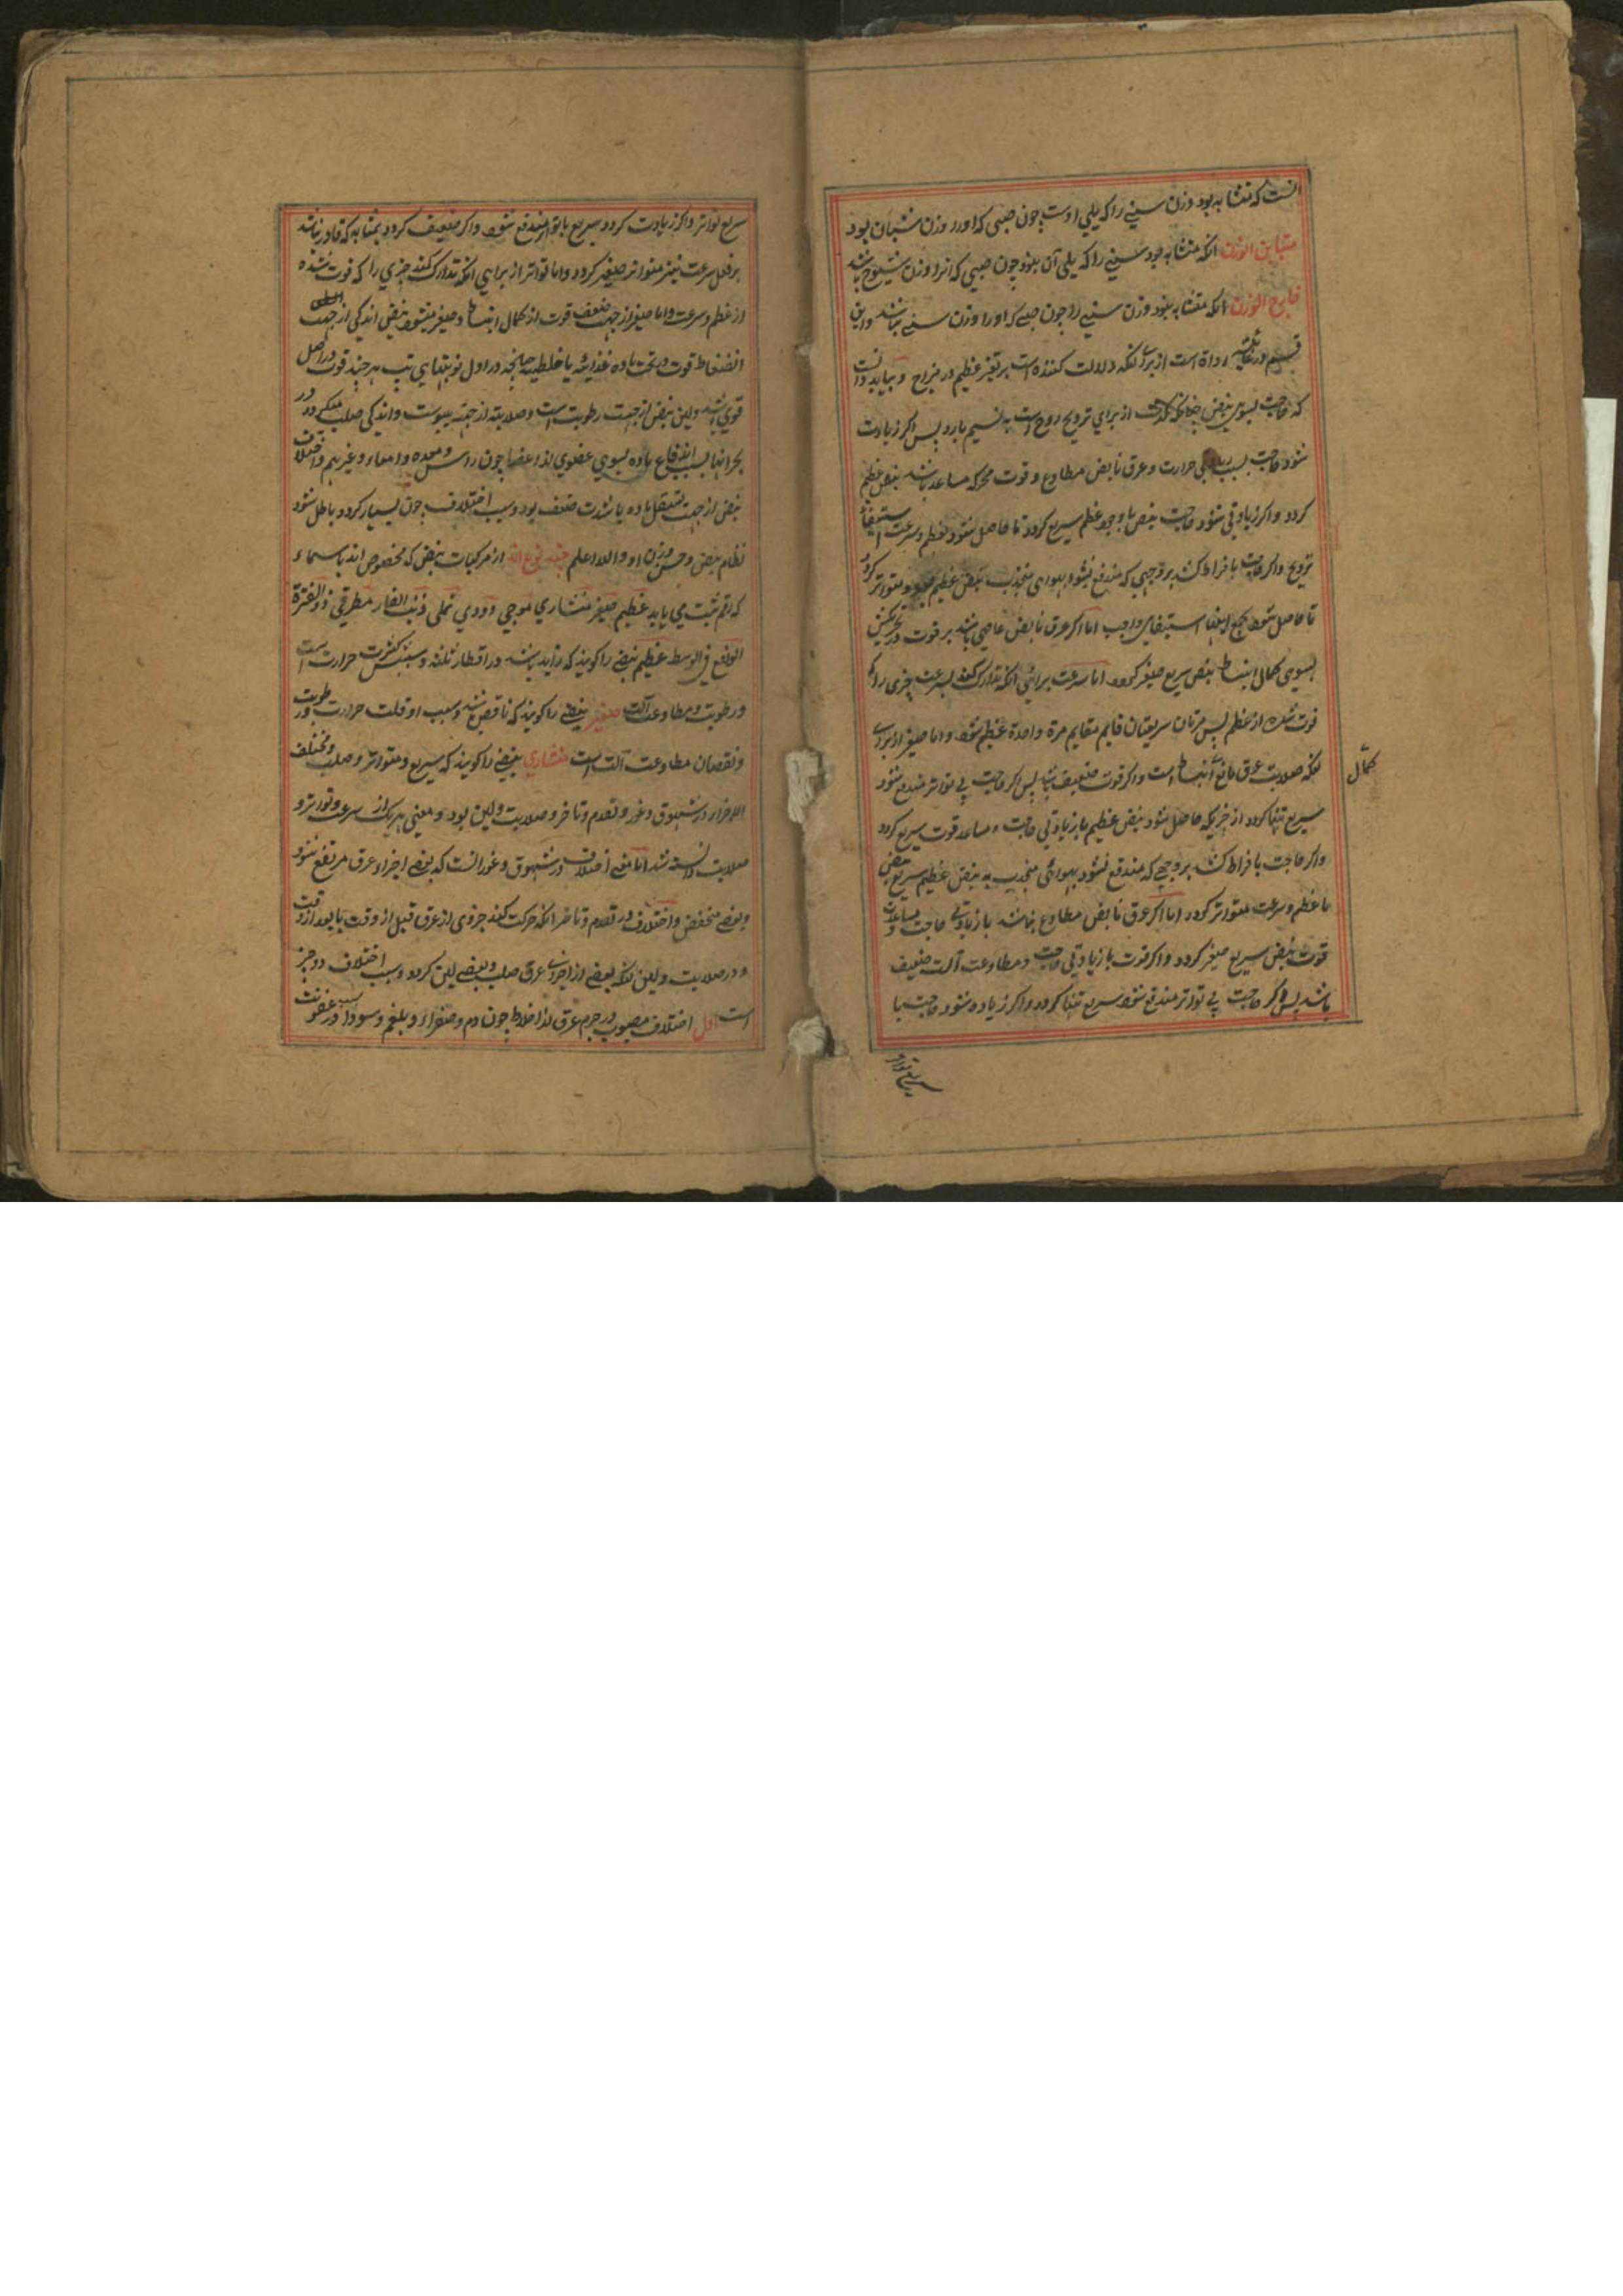 انست که متشابه بود وزن سنی را که یلی اوست چون صبی که اورا وزن شبان بود
متباین الوزن انکه متشابه بود سنی را که یلی آن نبود چون صبی که انرا وزن شیوخ باشد
خارج الوزن انکه متشابه نبود وزن سنی را چون صبی که اورا وزن سنی نباشد واین
قسم در غایت رداة است از برای انکه دلالت کننده است بر تغیر عظیم در مزاج و بباید دانست
که حاجت بسوی نبض چنانکه گذشت از برای ترویح روح است به نسیم بارد پس اکر زیادت
شود حاجت بسبب زیادتی حرارت و عرق نابض مطاوع و قوت محرکه مساعد باشد نبض عظیم
کردد و اکر زیادتی شود حاجت نبض با وجود عظم سریع کردد تا حاصل شود بعظم و سرعت استیفاء
ترویح و اکر حاجت بافراط کشد بروجهی که مندفع نشود بهوای منجذب نبض عظیم سریع و متواتر کردد
تا حاصل شود بجمع اینها استیفای واجب اما اکر عرق نابض عاصی باشد بر قوت در تحریکش
بسوی کمال انبساط نبض سریع صغیر کردد اما سرعت برائی انکه تدارک کند بسرعت چیزی را که
فوت شد از عظم پس مرتان سریعتان قایم مقایم مرة واحدة عظیم شود و اما صغیر از برای
انکه صلابت عرق مانع انبساط است و اکر قوت ضعیف باشد پس اکر حاجت بی تواتر مندفع شود
کمال
سریع تنها کردد از خبریکه حاصل شود نبض عظیم با زیادتی حاجت و مساعد قوت سریع کردد
و اکر حاجت بافراط کشد بروجهی که مندفع نشود بهوائی منجذب به نبض عظیم سریع نبض
با عظم و سرعت متواتر کردد اما اکر عرق نابض مطاوع نباشد با زیادتی حاجت و مساعدت
قوت نبض سریع صغیر کردد و اکر قوت با زیادتی حاجت و مطاوعت آلت ضعیف
باشد پس اکر حاجت بی تواتر مندفع شود سریع تنها کردد و اکر زیاده شود حاجت با
سریع تواتر
سریع تواتر و اکر زیادت کردد سریع با تواتر مندفع شود و اکر ضعیف کردد بمثابه که قادر نباشد
بر فعل سرعت نیز متواتر صغیر کردد و اما تواتر از برایی انکه تدارک کند چیزی را که فوت شده
از عظم و سرعت و اما صغیر از جهت ضعف قوت از کمال انبساط و صغیر میشود نبض اندکی از جهت
انضغاط قوت در تحت ماده غذائیه یا خلطیه چنانچه در اول نوبتهایی تب هر چند قوت در اصل
قوی باشد و لین نبض از جهت رطوبت است و صلابته از جهته یبوست و اندکی صلب میکردد در
بحرانها بسبب اندفاع ماده بسوی عضوی از اعضا چون راس و معده و امعاء و غیرهم و اختلاف
نبض از جهت ثقل ماده یا شدت ضعف بود و سبب اختلاف چون بسیار کردد باطل شود
نظام نبض و حسن وزن او والله اعلم چند نوع اند از مرکبات نبض که مخصوص اند باسماء
که رقم ثبت می یابد عظیم صغیر منشاری موجی دودی نملی ذنب الفار مطرقی ذو الفترة
الواقع فی الوسط عظیم نبضی را کویند که زاید باشد در اقطار ثلثه و سببش کثرت حرارت است
و رطوبت و مطاوعت آلت صغیر نبضی را کویند که ناقص باشد و سبب او قلت حرارت و رطوبت
و نقصان مطاوعت آلت است منشاری نبضی را کویند که سریع و متواتر و صلب و مختلف
الاجزاء در شهوق و غور و تقدم و تاخر و صلابت و لین بود و معنی هر یک از سرعت و تواتر و
صلابت دانسته شد اما معنی اختلاف در شهوق و غور انست که بعضی اجزاء عرق مرتفع شود
و بعضی منخفض و اختلاف در تقدم و تاخر انکه حرکت کند جزوی از عرق قبل از وقت یا بعد از وقت
و در صلابت و لین انکه بعضی از اجزای عرق صلب و بعضی لین کردد و سبب اختلاف دو چیز
است اول اختلاف مصبوب در جرم عرق از اخلاط چون دم و صفراء و بلغم و سودا در عفونت